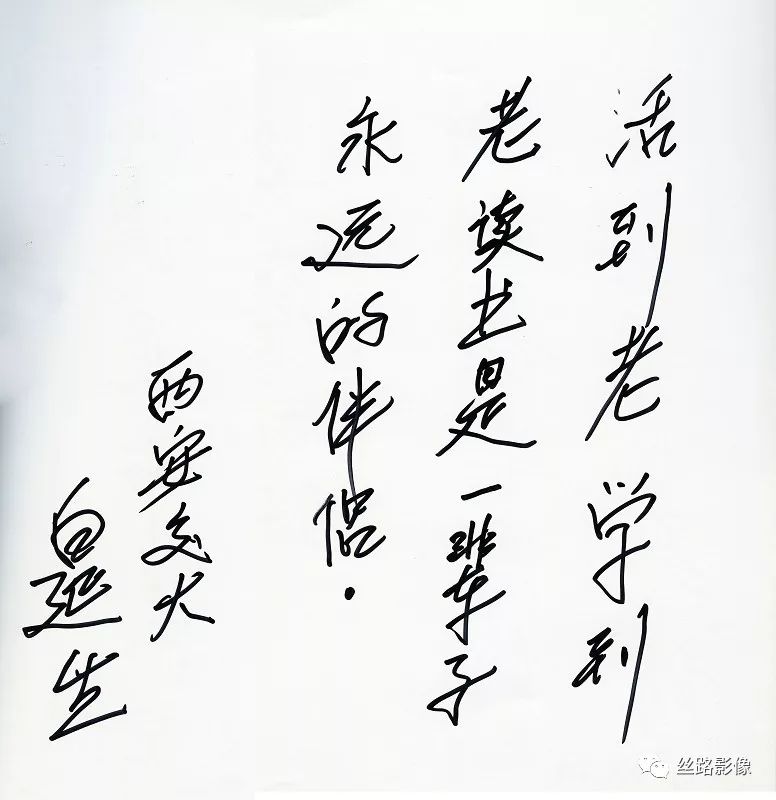 活到老学到
老读书是一辈子
永远的伴侣.
西安交大
白延生
丝路影像